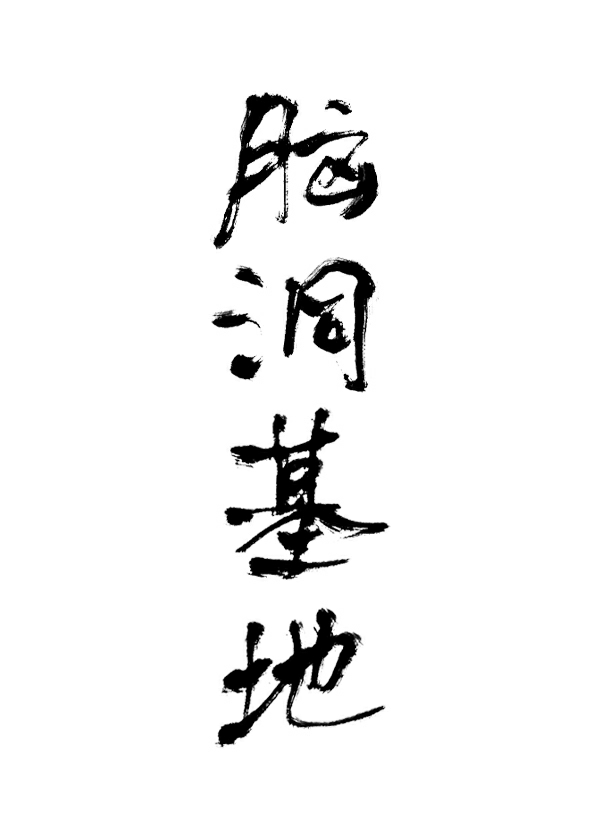 脑洞基地